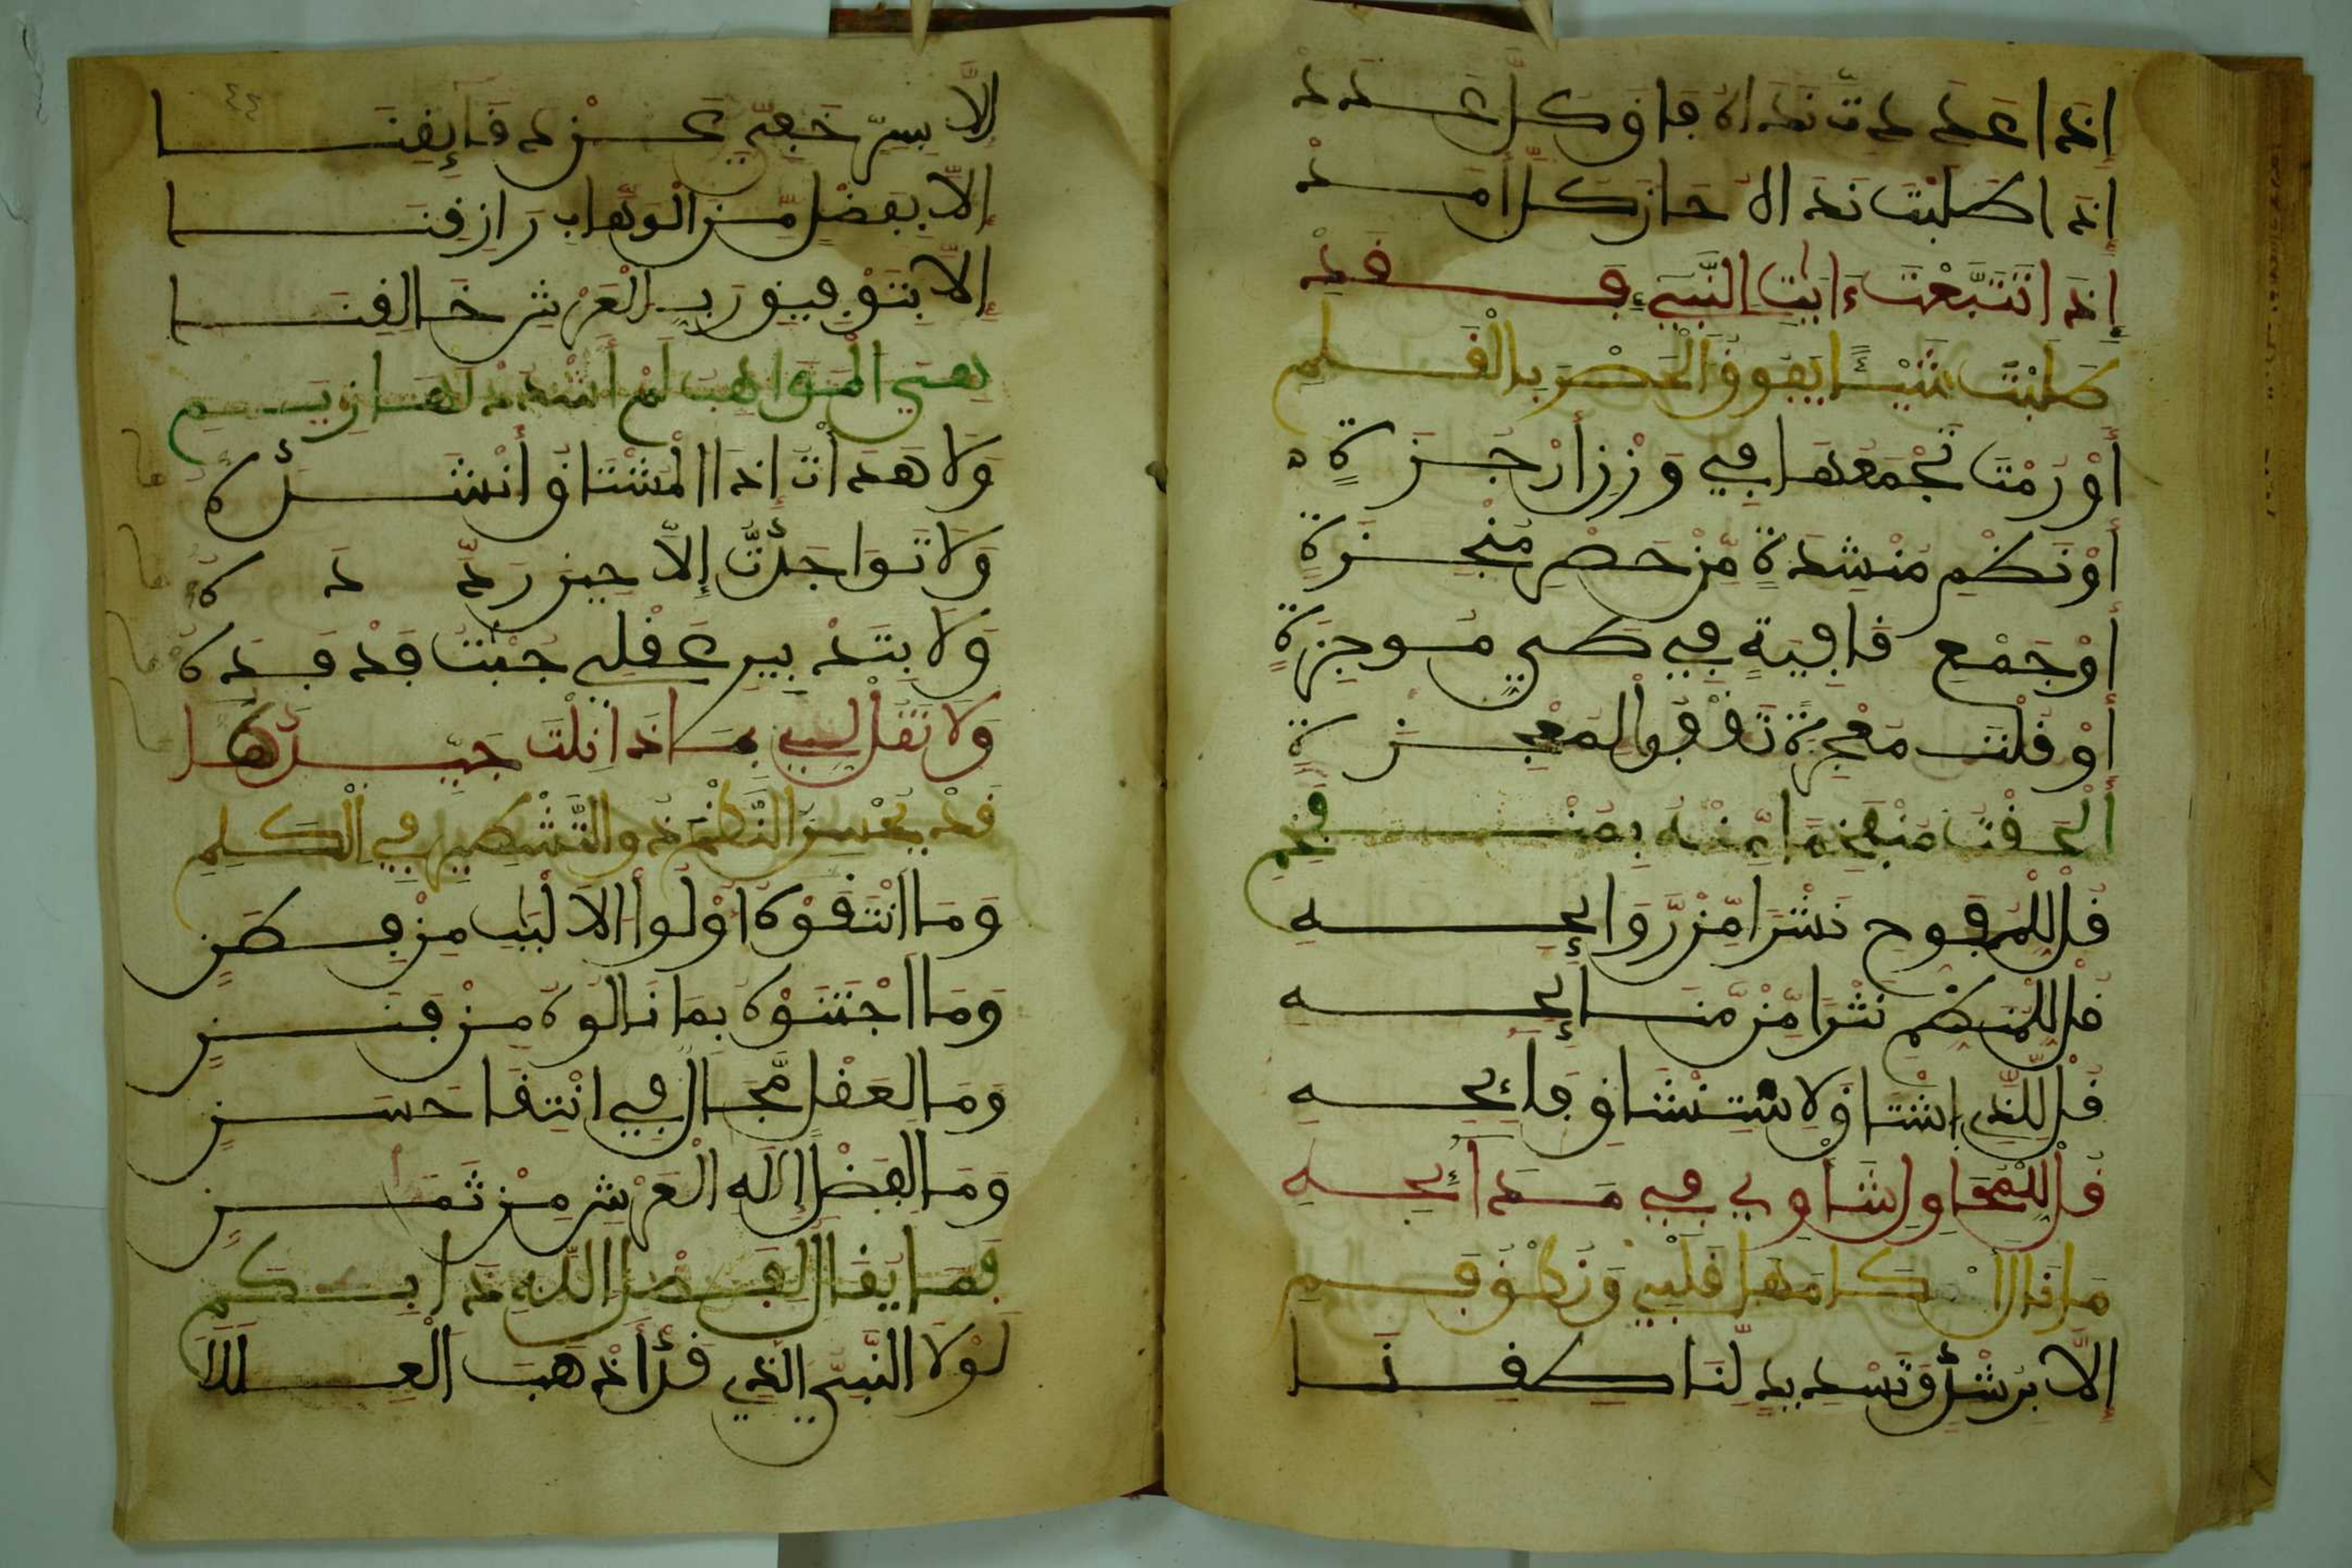 إذا عددت نداه فاق كل عدد
إذا طلبت نداه حاز كل أمد
إذا تتبعت ءايت النبيء فقد
طلبت شيئا يفوق الحصر بالقلم
أو رمت تجمعها في وزن أرجزة
أو نظم منشدة من حصر منجزة
أو جمع قافية في طي موجزة
أو قلت معجزة تقفو لمعجزة
ألحقت منفخما منه بمنفخم
قل للمفوح نشرا من روايحه
قل للمنظم نثرا من منايحه
قل للذي اشتاق لاستنشاق فائحه
قل للمحاول شأوي في مدائحه
ما ذا
إلا برشد وتسديد لنا كفنا
إلا بسر خفي عز فإيقنا
إلا بفضل من الوهاب رازقنا
إلا بتوفيق رب العرش خالقنا
هي المواهب لم أشدد لها زيم
ولا هدأت إذا المشتاق أنشده
ولا تواجدت إلا حين ردده
ولا بتدبير عقلي جئت قد فده
ولا تقل لي بماذا نلت جيدها
قد يحسن النظم ذو التشطير في الكلم
وما انتقوه أولوا الالبب من فطن
وما اجتنوه بما نالوه من فنن
وما لعقل مجال في انتقا حسن
وما لفضل إله العرش من ثمن
فما يقال لفضل الله ذا بكم
لولا النبي الذي قد أذهب العللا